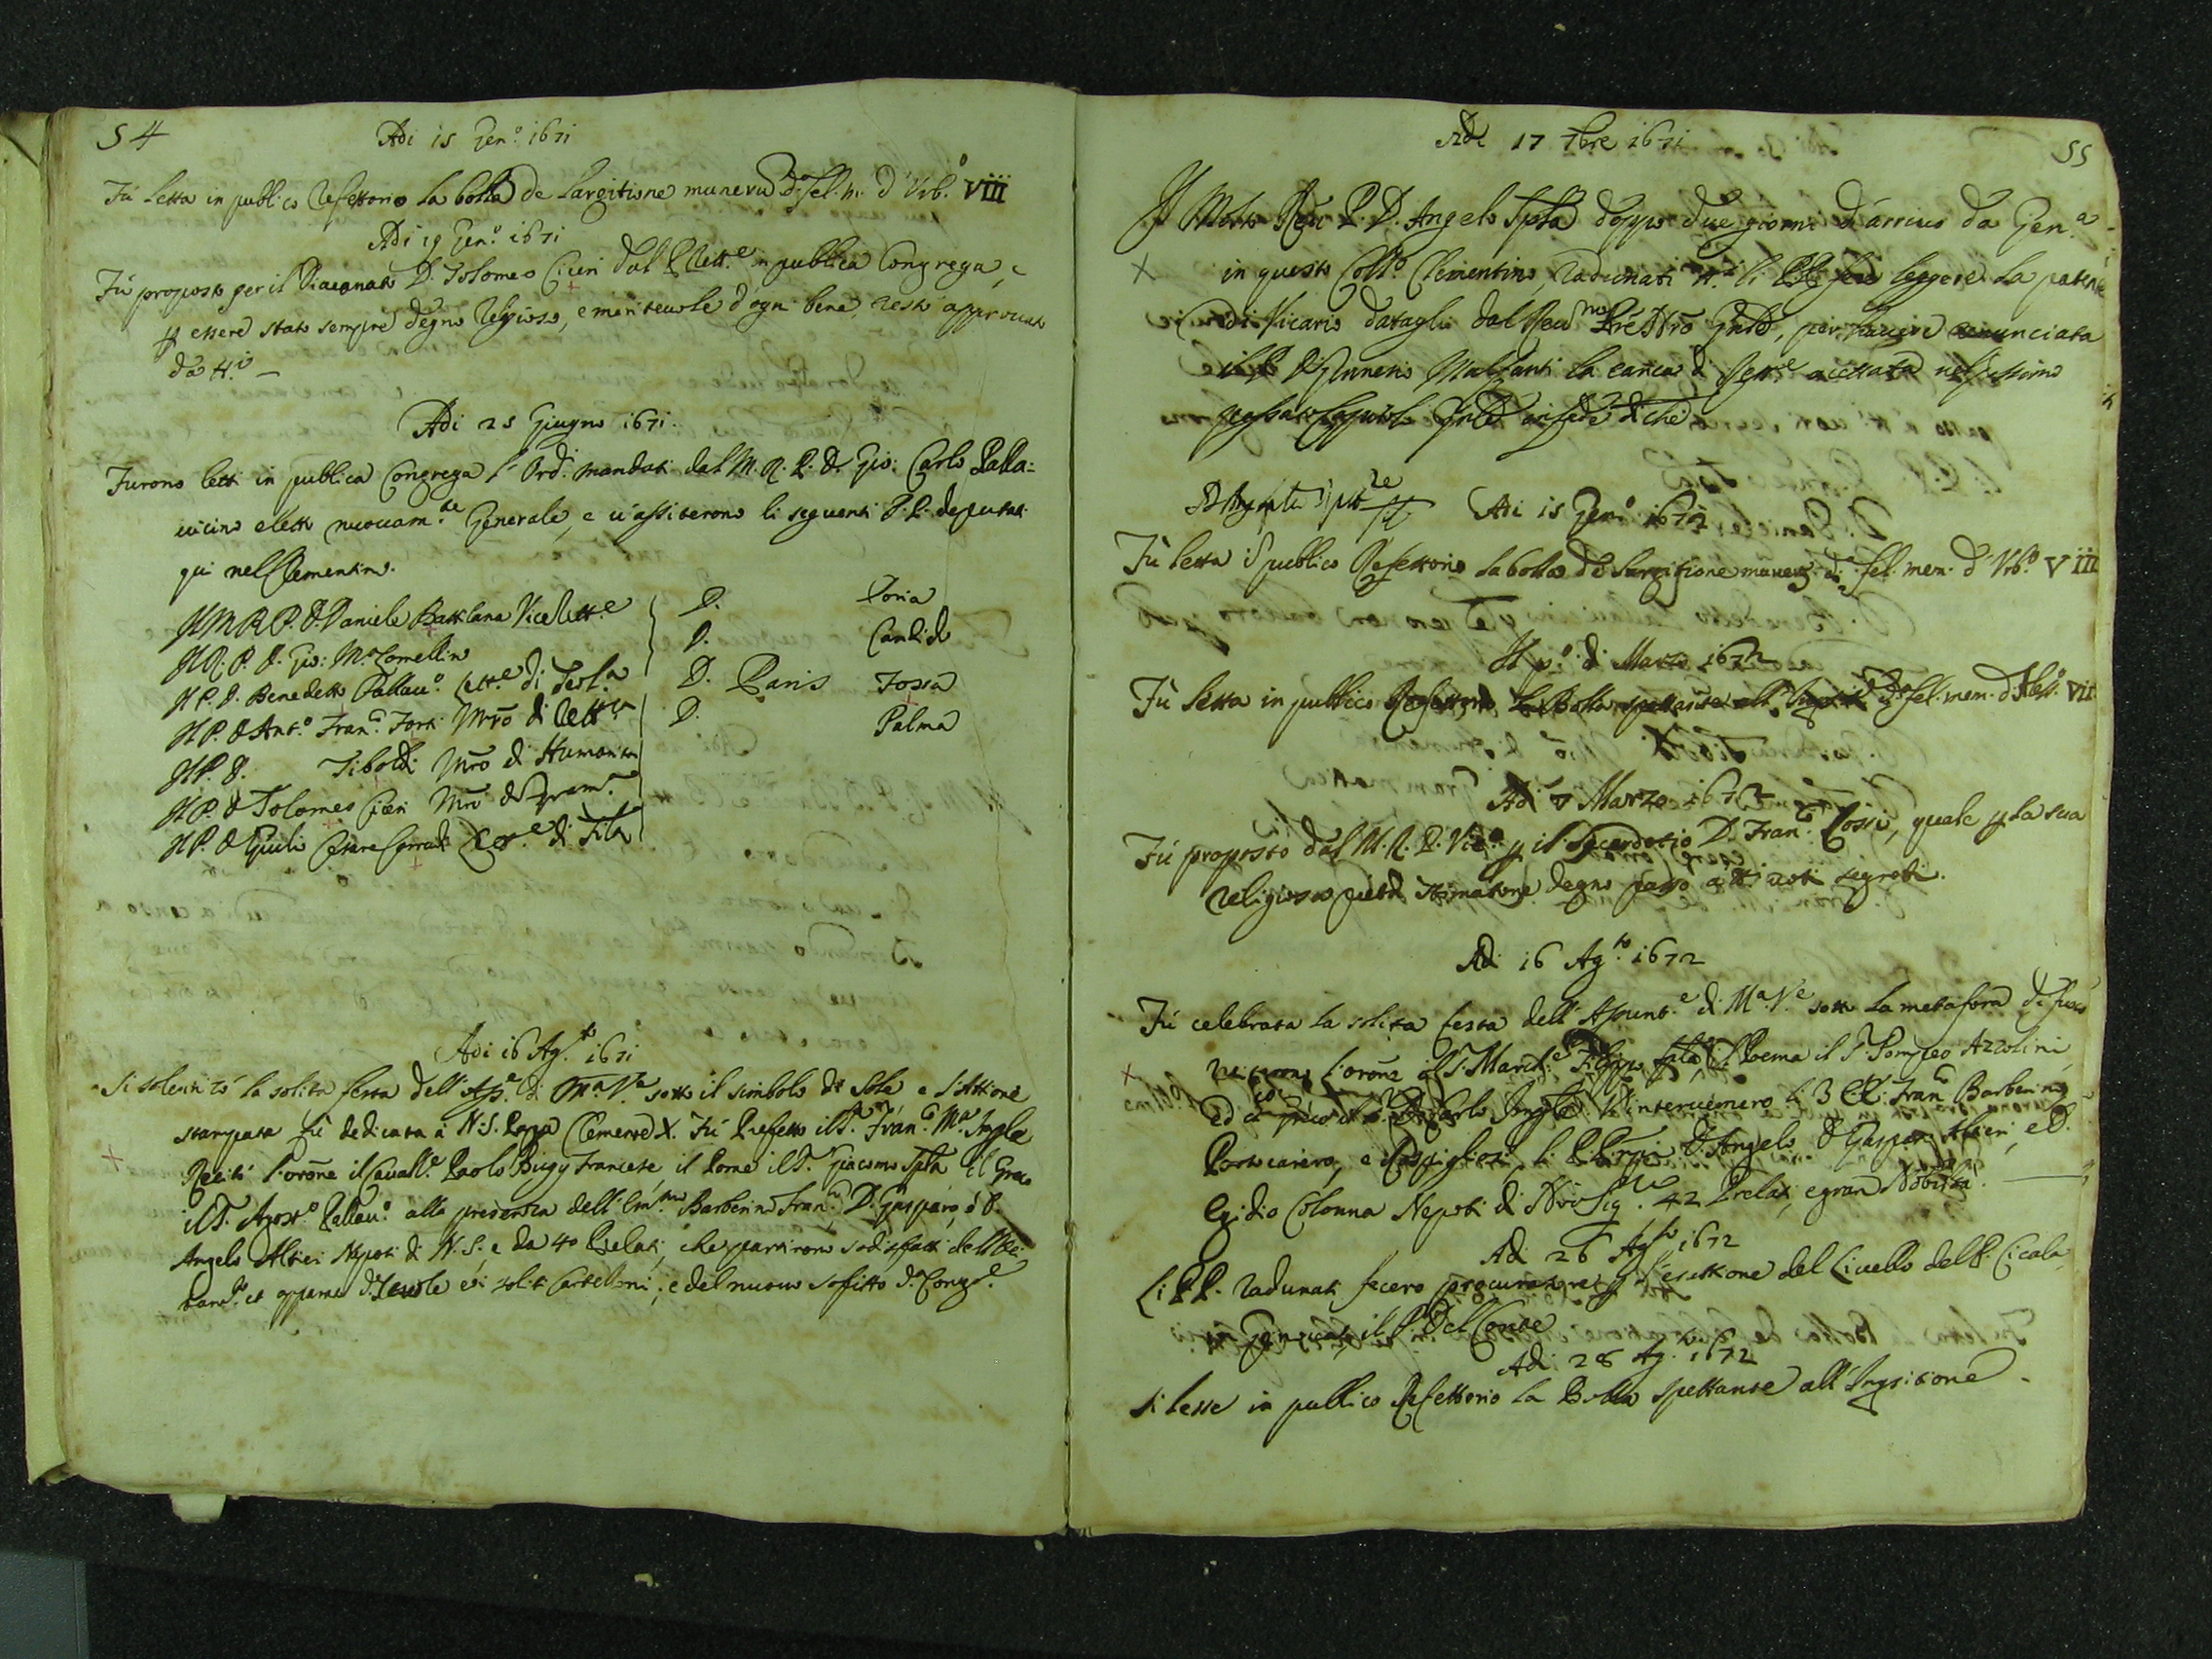 54
Adi 15 Gen.o 1671
Fù letta in publico Refettorio la bolla de largitione munerũ di fel. m. d'Urb.o VIII
Adi 19 Gen.o 1671
Fù proposto per il Diaconato D. Tolomeo Ciceri dal P. Rett.e in publica Congrega, e
p essere stato sempre degno Religioso, e meriteuole d'ogni bene, restò approuato
da tt.i
Adi 25 Giugno 1671.
Furono letti in publica Congrega l'Ord.i mandati dal M. R. P. D. Gio: Carlo Palla=
uicino eletto nuouam.te Generale, e u'assisterono li seguenti P.P. deputati
qui nel Clementino.
Il M R P. D. Daniele Battilana Vice Rett.e
Il R. P. D. Gio: M.a Comellino
Il P. D. Benedetto Pallau.o Lett.e di Teol.a
Il P. D. Ant.o Fran.co Forti Mrõ di Rett.ca
Il P. D. Tiboldi Mrõ di Humanità
Il P. D Tolomeo Ciceri Mrõ di Gram.ca
Il P. D Giulio Cesare Corradi di Fila
D. Doria
D. Candido
D. Paris Fossa
D. Palma
Adi 16 Ag.to 1671
Si solenizò la solita festa dell'Ass.e di M.a V.e sotto il simbolo di Sole e l'Attione
stampata fù dedicata à N. S. Papa Clemente X. Fù Prefetto il S. Fran.co M.a
Recitò l'orõne il Cauall.e Paolo Bigy Francese, il Poema il S. Giacomo Spla il Greco
il S. Agost.o Pallau.o alla presenza dell'Em.mo Barberino Fran.co, D. Gasparo, e D.
Angelo Altieri Nepoti di N. S. e da 40 Prelati, che partirono sodisfatti dell'
et opparam.o d'Tauole e soliti Cartelloni, e del nuouo soffitto d. Congr.e
55
Adi 17 7bre 1671
Il Molto Reu. P. D. Angelo Spla doppo due giorni d'arriuo da Gen.a
in questo Coll.o Clementino, radunati tt.i li PP. fece leggere la patente
di Vicario datagli dal Reu.mo Prẽ Nrõ Gnle, per hauere renunciata
il P. D. Malfanti la carica di Rett.e accettata nel prossimo
in fede di che
Adi 15 Gen.o 1672
Fù letta i publico Refettorio la bolla de largitione muner. di fel. mem. d'Urb.o VIII
Il p.o di Marzo 1672
Fù letta in publico Refettorio la Bolla spettante all' di fel. mem. d'Aless.o VII
Adi Marzo 1672
Fù proposto dal M. R. P. Vic.o p il Sacerdotio D. Fran.co Cossi, quale p la sua
religiosa pietà stimatone degno passò à tt.i uoti segreti.
Adi 16 Ag.to 1672
Fù celebrata la solita festa dell'Assunt.e di M.a V.e sotto la metafora di fuoco
l'orõne il S. March.e Filippo il Poema il S. Pompeo Azzolini
ed il greco il S. Carlo intervennero li 3 Fran.co Barberino
Portocarero, e Rospigliosi, li D. Angelo, D Gasparo Altieri, e D.
Egidio Colonna Nepoti di Nrõ Sig.re 42 Prelati, e gran Nobiltà.
Adi 26 Ag.to 1672
Li PP. radunati fecero procuratore p l'esattione del Liuello del P. Cicala
il P. Del Conte
Adi 28 Ag.to 1672
Si lesse in publico Refettorio la Bolla spettante all'Inqsitione